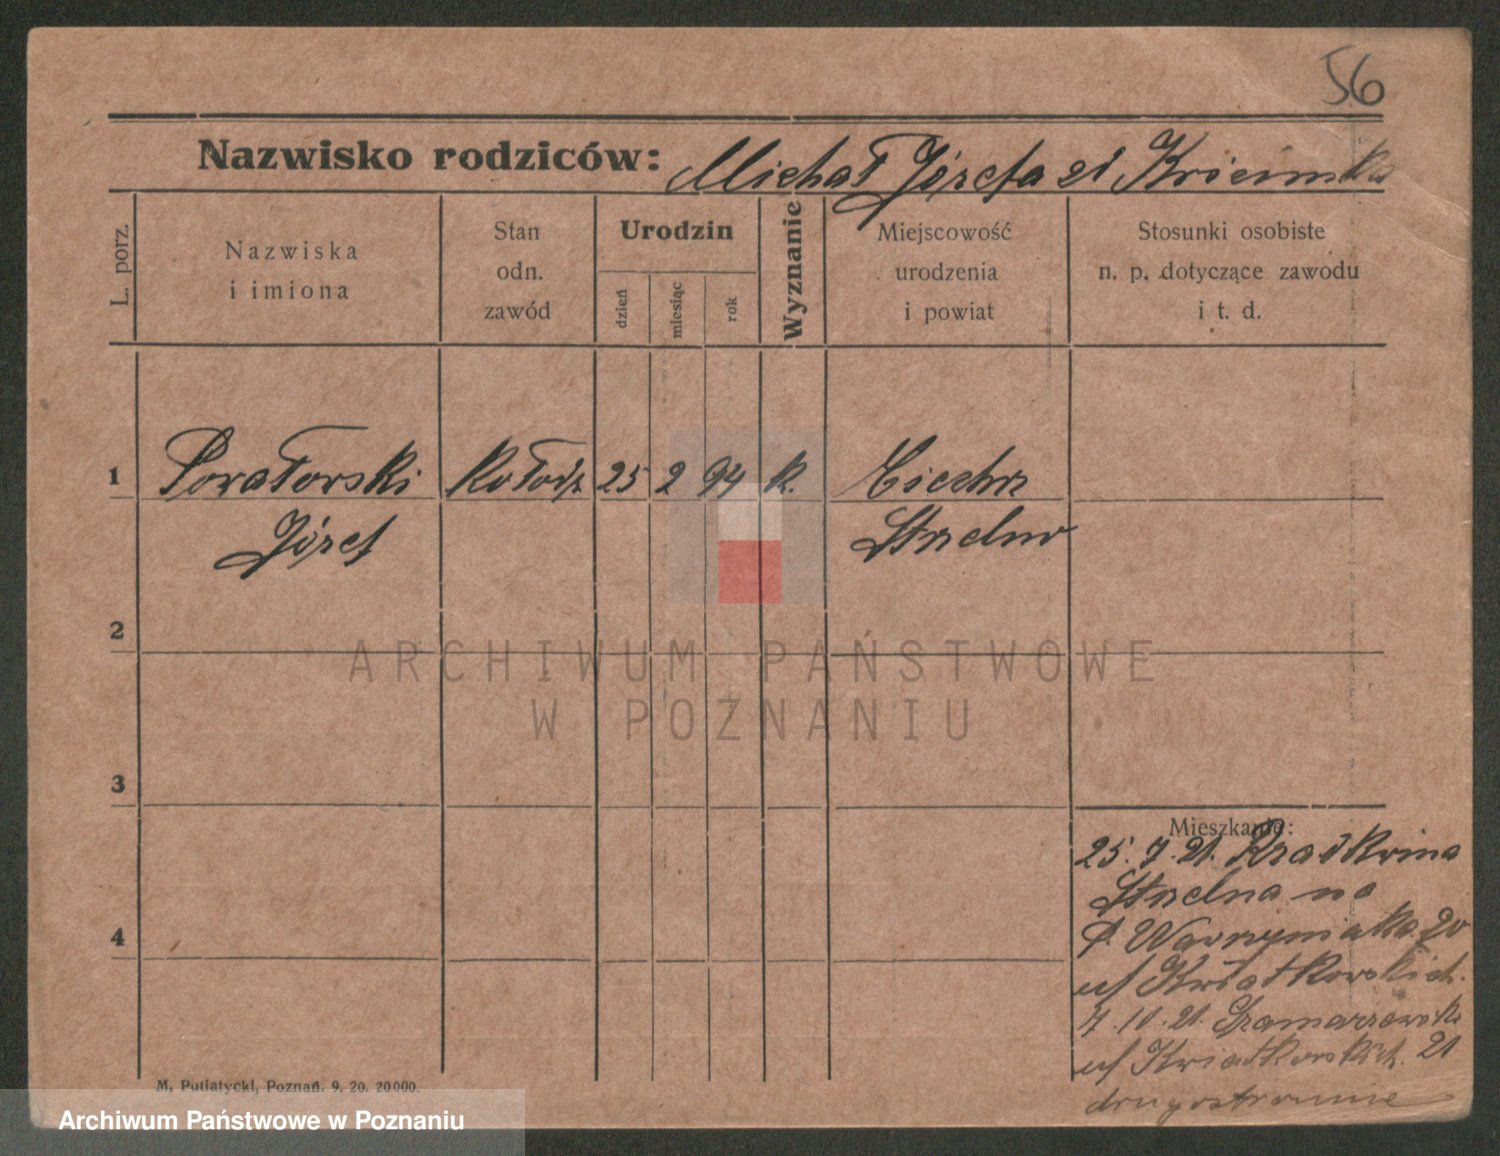 56
Nazwisko rodziców: Michał Józefa zd
L. porz.
Nazwiska
i imiona
Stan
odn.
zawód
Urodzin
dzień
miesiąc
rok
Wyznanie
Miejscowość
urodzenia
i powiat
Stosunki osobiste
n. p. dotyczące zawodu
i t. d.
1 Powałowski Kołodz 25 2 94 k. Ciechrz
Józef Strzelno
2
3
4
Mieszkanie:
25.7.21.
Strzelna na
P. Wawrzyniaka 20
u/ Kwiatkowskich.
7.10.21.
u/ Kwiatkowskich. 21
drugostronnie
M. Putiatycki, Poznań. 9. 20. 20000.
ARCHIWUM PAŃSTWOWE
W POZNANIU
Archiwum Państwowe w Poznaniu